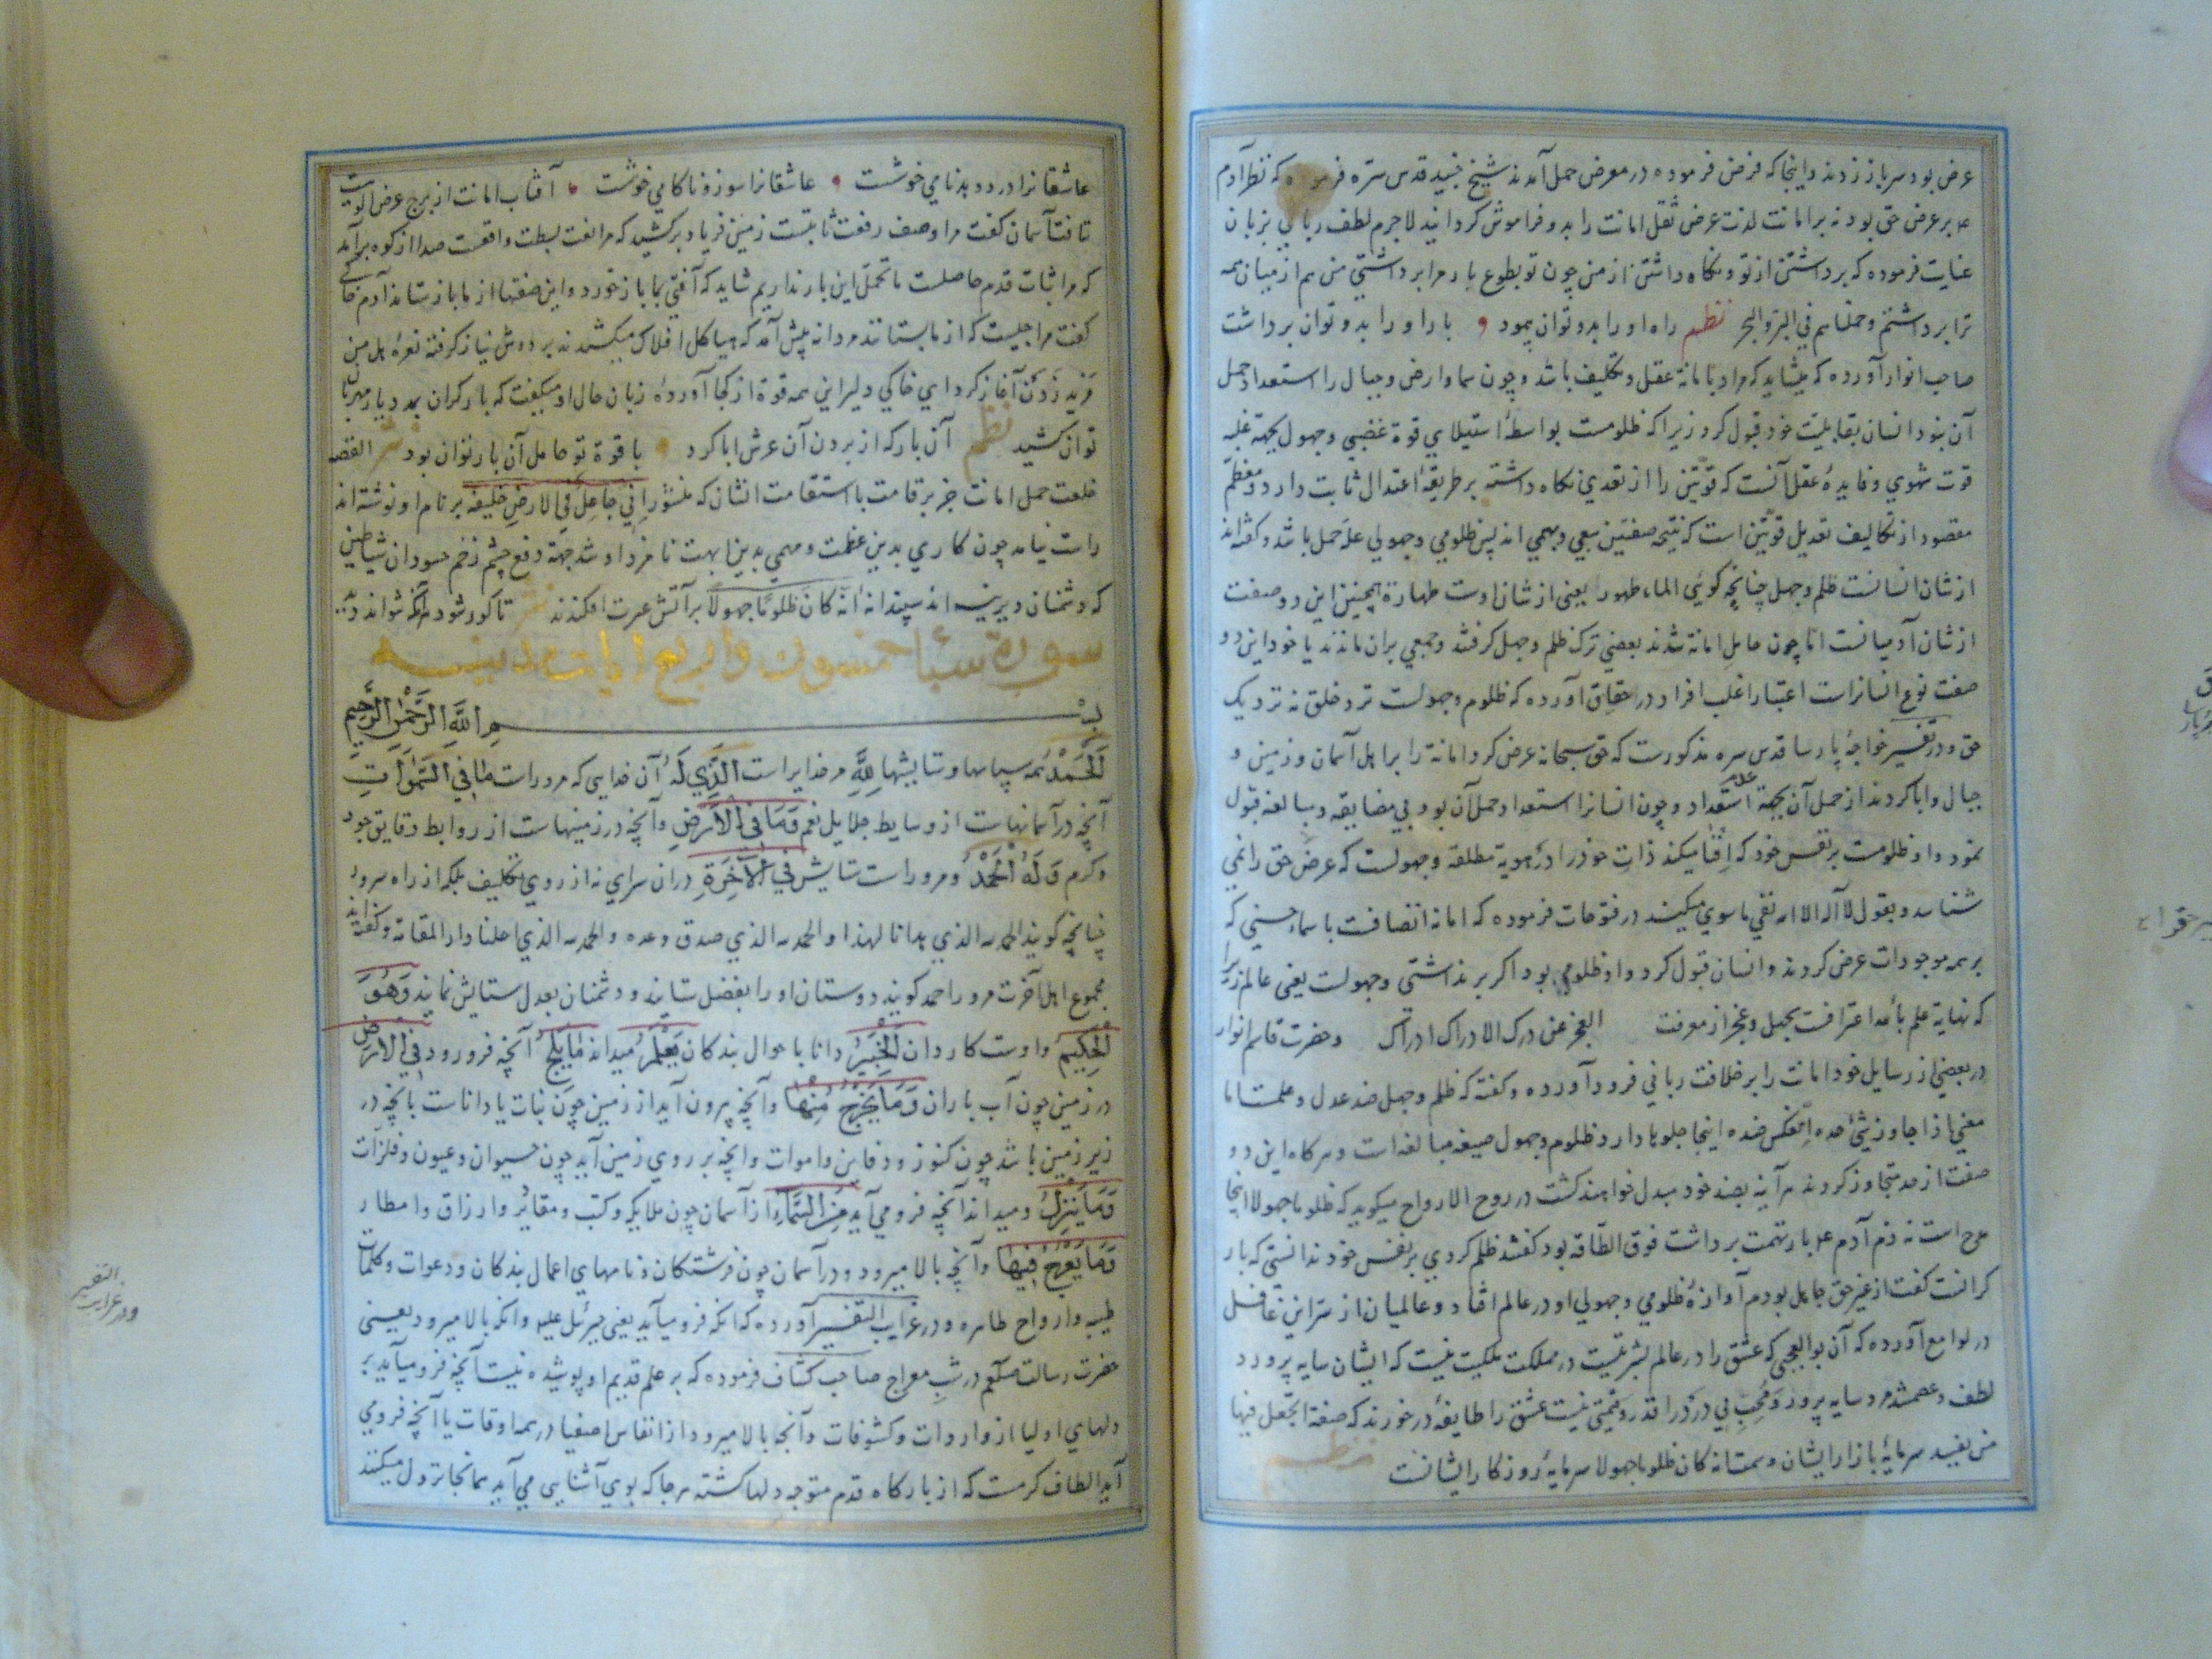 عرض بود سر باز زدند و اینجا که فرض فرموده در معرض حمل آمدند شیخ جنید قدس سره فرموده که نظر آدم
بر عرض حق بود نه بر امانت لذت عرض ثقل امانت را بدو فراموش کردانید لاجرم لطف ربانی بزبان
عنایت فرموده که برداشتن از تو و نکاه داشتن از من چون تو بطوع بار مرا برداشتی من هم از میان همه
ترا برداشتم و حملناهم فی البر والبحر نظم راه او را بدو توان پیمود بار او را بدو توان برداشت
صاحب انوار آورده که میشاید که مراد بامانة عقل و تکلیف باشد و چون سما و ارض و جبال را استعداد حمل
آن نبود انسان بقابلیت خود قبول کرد زیرا که ظلومست بواسطهٔ استیلای قوة غضبی و جهول بجهة غلبه
قوت شهوی و فایدهٔ عقل آنست که قوتین را از تعدی نکاه داشته بر طریقهٔ اعتدال ثابت دارد و معظم
مقصود از تکالیف تعدیل قوتین است که نتیجه صفتین سبعی و بهیمی اند پس ظلومی و جهولی علة حمل باشد و کفته‌اند
از شان انسانست ظلم و جهل چنانچه کوئی الماء طهور یعنی از شان اوست طهارة همچنین این دو صفت
از شان آدمیانست اما چون حامل امانة شدند بعضی ترک ظلم و جهل کرفتند و جمعی بران ماندند یا خود این دو
صفت نوع انسانراست اعتبار اغلب افراد در حقایق آورده که ظلوم و جهولست نزد خلق نه نزدیک
حق و در تفسیر خواجهٔ پارسا قدس سره مذکورست که حق سبحانه عرض کرد امانة را بر اهل آسمان و زمین و
جبال و ابا کردند از حمل آن بجهة عدم استعداد و چون انسانرا استعداد حمل آن بود بی مضایقه و مبالغه قبول
نمود و او ظلومست بر نفس خود که افنا میکند ذات خود را در هویة مطلقه و جهولست که عرض حق را نمی
شناسد و بقول لا اله الا الله نفی ما سوی میکند در فتوحات فرموده که امانة اتصافست باسماء حسنی که
بر همه موجودات عرض کردند و انسان قبول کرد و او ظلومی بود اکر بر نداشتی و جهولست یعنی عالم زیرا
که نهایة علم بالله اعترافست بجهل و عجز از معرفت العجز عن درک الادراک ادراک و حضرت قاسم انوار
در بعضی از رسایل خود امانت را بر خلافت ربانی فرود آورده و کفته که ظلم و جهل ضد عدل و علمست اما
معنی اذا جاوز شیٔ حده انعکس ضده اینجا جلوها دارد ظلوم و جهول صیغه مبالغه است و هر کاه این دو
صفت از حد تجاوز کردند هر آینه بضد خود مبدل خواهند کشت در روح الارواح میکوید که ظلوما جهولا اینجا
مدح است نه ذم آدم علیه بار تهمت برداشت فوق الطاقه بود کفتند ظلم کردی بر نفس خود ندانستی که بار
کرانست کفت از غیر حق جاهل بودم آوازهٔ ظلومی و جهولی او در عالم افتاد و عالمیان از سر این غافل
در لوامع آورده که آن بوالعجبی که عشق را در عالم بشریتست در مملکت ملکیت نیست که ایشان سایه پرورد
لطف و عصمتند مرد سایه پرورد و محب بی درد را قدر و قیمتی نیست عشق را طایفهٔ درخورند که صفة اتجعل فیها
من یفسد سرمایهٔ بازار ایشان و سمت انه کان ظلوما جهولا سرمایهٔ روزکار ایشانست نظم
عاشقانرا درد و بدنامی خوشست عاشقانرا سوز و ناکامی خوشت آفتاب امانت از برج عرض الوهیت
تافت آسمان کفت مرا وصف رفعت ثابتست زمین فریاد برکشید که مرا نعت بسطت واقعست صدا از کوه برآمد
که مرا ثبات قدم حاصلست ما تحمل این بار نداریم شاید که آفتی بما باز خورد و این صفتها از ما باز ستاند آدم خاکی
کفت مرا چیست که از ما بستانند مردانه پیش آمد که هیاکل افلاک میکشیدند بر دوش نیاز کرفته نعرهٔ هل من
مزید زدن آغاز کرد ای خاکی دلیر این همه قوة از کجا آوردهٔ زبان حال او میکفت که بار کران بمدد یار مهربان
توان کشید نظم آن بار که از بردن آن عرش ابا کرد با قوة تو حامل آن بار توان بود نثر القصه
خلعت حمل امانت جز بر قامت با استقامت انسان که منشور انی جاعل فی الارض خلیفة بر نام او نوشته اند
راست نیامد چون کاری بدین عظمت و مهمی بدین ابهت نامزد او شد جهة دفع چشم زخم حسودان شیاطین
که دشمنان دیرینه اند سپند انه کان ظلوما جهولا بر آتش عبرت افکندند تا کور شود هر آنکه نتواند دید
سورة سبأ خمسون واربع ایات مدنیه
بسم الله الرحمن الرحیم
اَلْحَمْدُ همه سپاسها و ستایشها لِلّٰهِ مر خدایراست الَّذِی لَهُ آن خدایی که مرو راست مَا فِی السَّمٰوَاتِ
آنچه در آسمانهاست از وسایط جلایل نعم وَمَا فِی الْاَرْضِ و آنچه در زمینهاست از روابط دقایق جود
و کرم وَلَهُ الْحَمْدُ و مرو راست ستایش فِی الْاٰخِرَةِ دران سرای نه از روی تکلیف بلکه از راه سرور
چنانچه کویند الحمد لله الذی هدانا لهذا و الحمد لله الذی صدق وعده و الحمد لله الذی احلنا دار المقامة و کفته‌اند
مجموع اهل آخرت مرو را حمد کویند دوستان او را بفضل ستایند و دشمنان بعدل ستایش نمایند وَهُوَ
الْحَکِیمُ و اوست کاردان الْخَبِیرُ دانا باحوال بندکان یَعْلَمُ میداند مَا یَلِجُ آنچه فرو رود فِی الْاَرْضِ
در زمین چون آب باران وَمَا یَخْرُجُ مِنْهَا و آنچه بیرون آید از زمین چون نبات یا داناست بآنچه در
زیر زمین باشد چون کنوز و دفاین و اموات و انچه بر روی زمین آید چون حیوان و عیون و فلزات
وَمَا یَنْزِلُ و میداند آنچه فرو می آید مِنَ السَّمَاءِ از آسمان چون ملایکه و کتب و مقادیر و ارزاق و امطار
وَمَا یَعْرُجُ فِیهَا و آنچه بالا میرود و در آسمان چون فرشتکان و نامهای اعمال بندکان و دعوات و کلمات
طیبه و ارواح طاهره و در غرایب التفسیر آورده که انکه فرو میآید یعنی جبرئیل علیه و انکه بالا میرود یعنی
حضرت رسالت صلعم در شب معراج صاحب کشاف فرموده که بر علم قدیم او پوشیده نیست آنچه فرو میآید بر
دلهای اولیا از واردات و کشوفات و آنچه بالا میرود از انفاس اصفیا در همه اوقات یا آنچه فرو می
آید الطاف کرمست که از بارکاه قدم متوجه دلها کشته هر جا که بوی آشنایی می آید همانجا نزول میکند
ودر غرایب
التفسیر